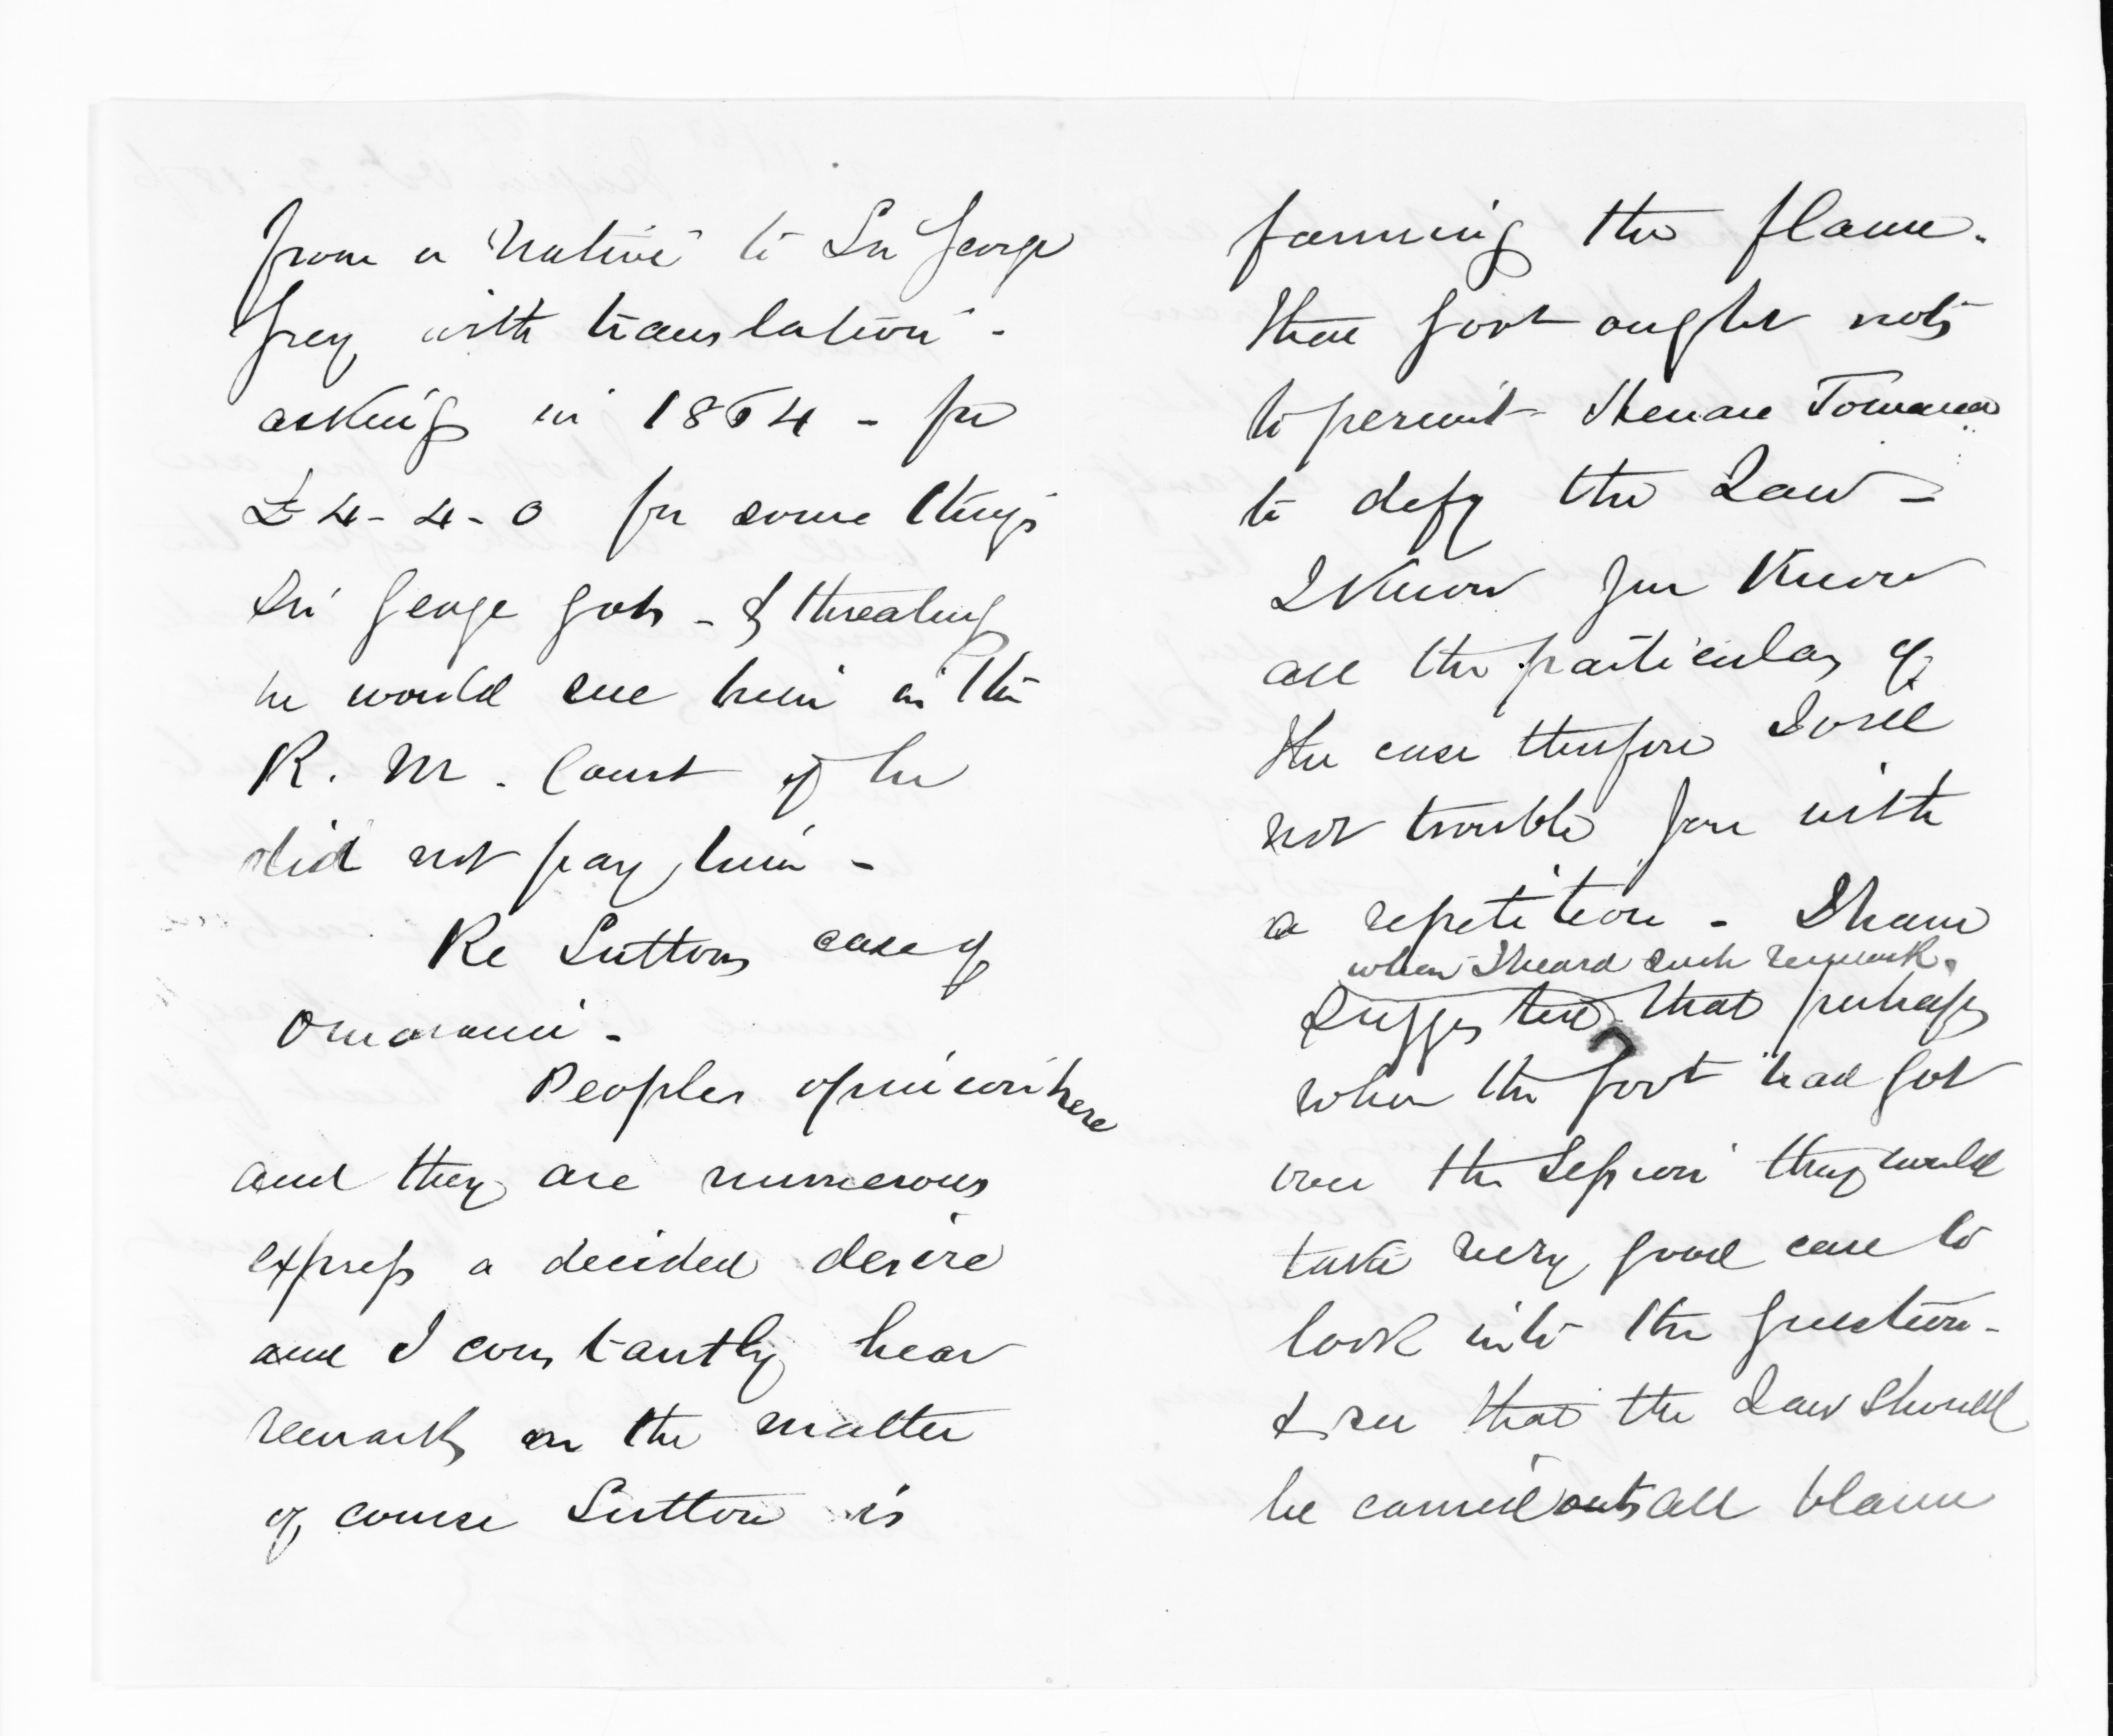 from a Native to Sir George
Grey with translation -
asking in 1864 - for
£4-4-0 for some things
Sir George got - & threateng
he would sue him in the
R. M. Court if he
did not pay him -
Re Suttons case of
Omaranui -
Peoples opinion here
and they are numerous
express a decided desire
and I constantly hear
remarks on the matter
of course Sutton is
fanning the flame.
that Govt ought not
to permit Henare Tomoana
to defy the Law -
I know you know
all the particulars of
the case therefore I will
not trouble you with
a repetition - I have
when I heard such remarks
suggested that perhaps
when the Govt had got
over the Session they would
take very good care to
look into the question -
& see that the Law should
be carried out all blame